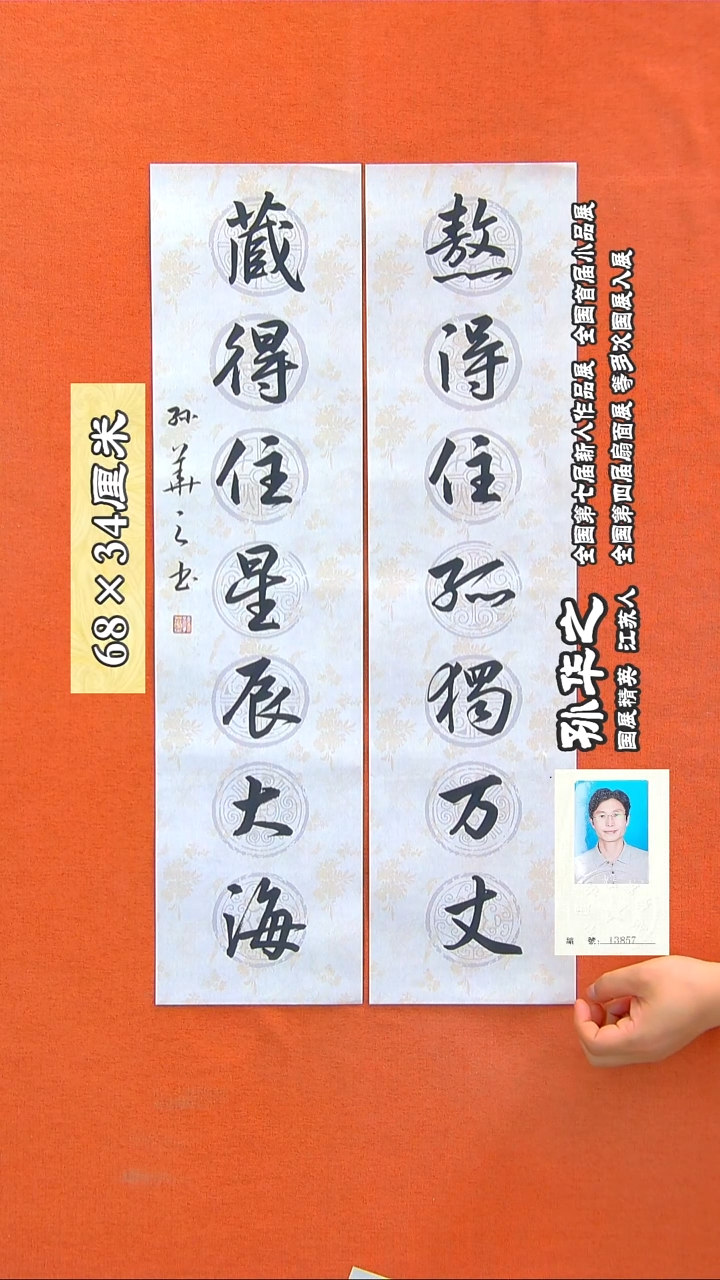 熬得住孤獨万丈
蔵得住星辰大海
孙華之书
68×34厘米
孙华之
国展精英 江苏人
全国第七届新人作品展 全国首届小品展
全国第四届扇面展 等多次国展入展
編 號: 13857